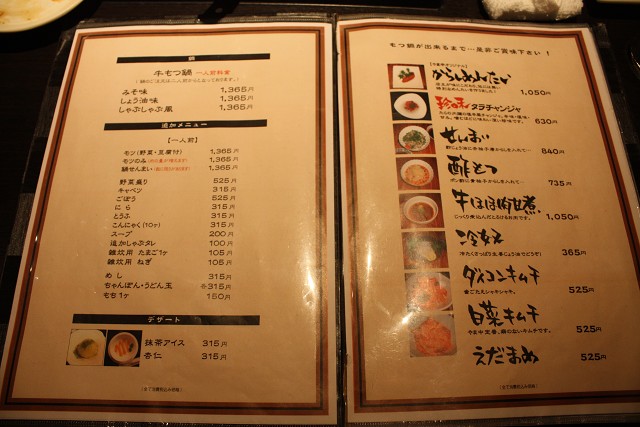 鍋
牛もつ鍋 一人前料金
みそ味 1,365円
しょう油味 1,365円
しゃぶしゃぶ風 1,365円
追加メニュー
【一人前】
モツ(野菜・豆腐付) 1,365円
モツのみ 1,365円
鍋せんまい 1,365円
野菜盛り 525円
キャベツ 315円
ごぼう 525円
にら 315円
とうふ 315円
こんにゃく(10ヶ) 315円
スープ 200円
追加しゃぶタレ 100円
雑炊用 たまご1ヶ 105円
雑炊用 ねぎ 105円
めし 315円
ちゃんぽん・うどん玉 各315円
もち1ヶ 150円
デザート
抹茶アイス 315円
杏仁 315円
もつ鍋が出来るまで…是非ご賞味下さい!
からしめんたい 1,050円
珍味 タラチャンジャ 630円
せんまい 840円
酢もつ 735円
牛ほほ肉煮 1,050円
じっくり煮込んだとろける肉です。
冷奴 365円
ダイコンキムチ 525円
歯ごたえシャキシャキ。
白菜キムチ 525円
えだまめ 525円